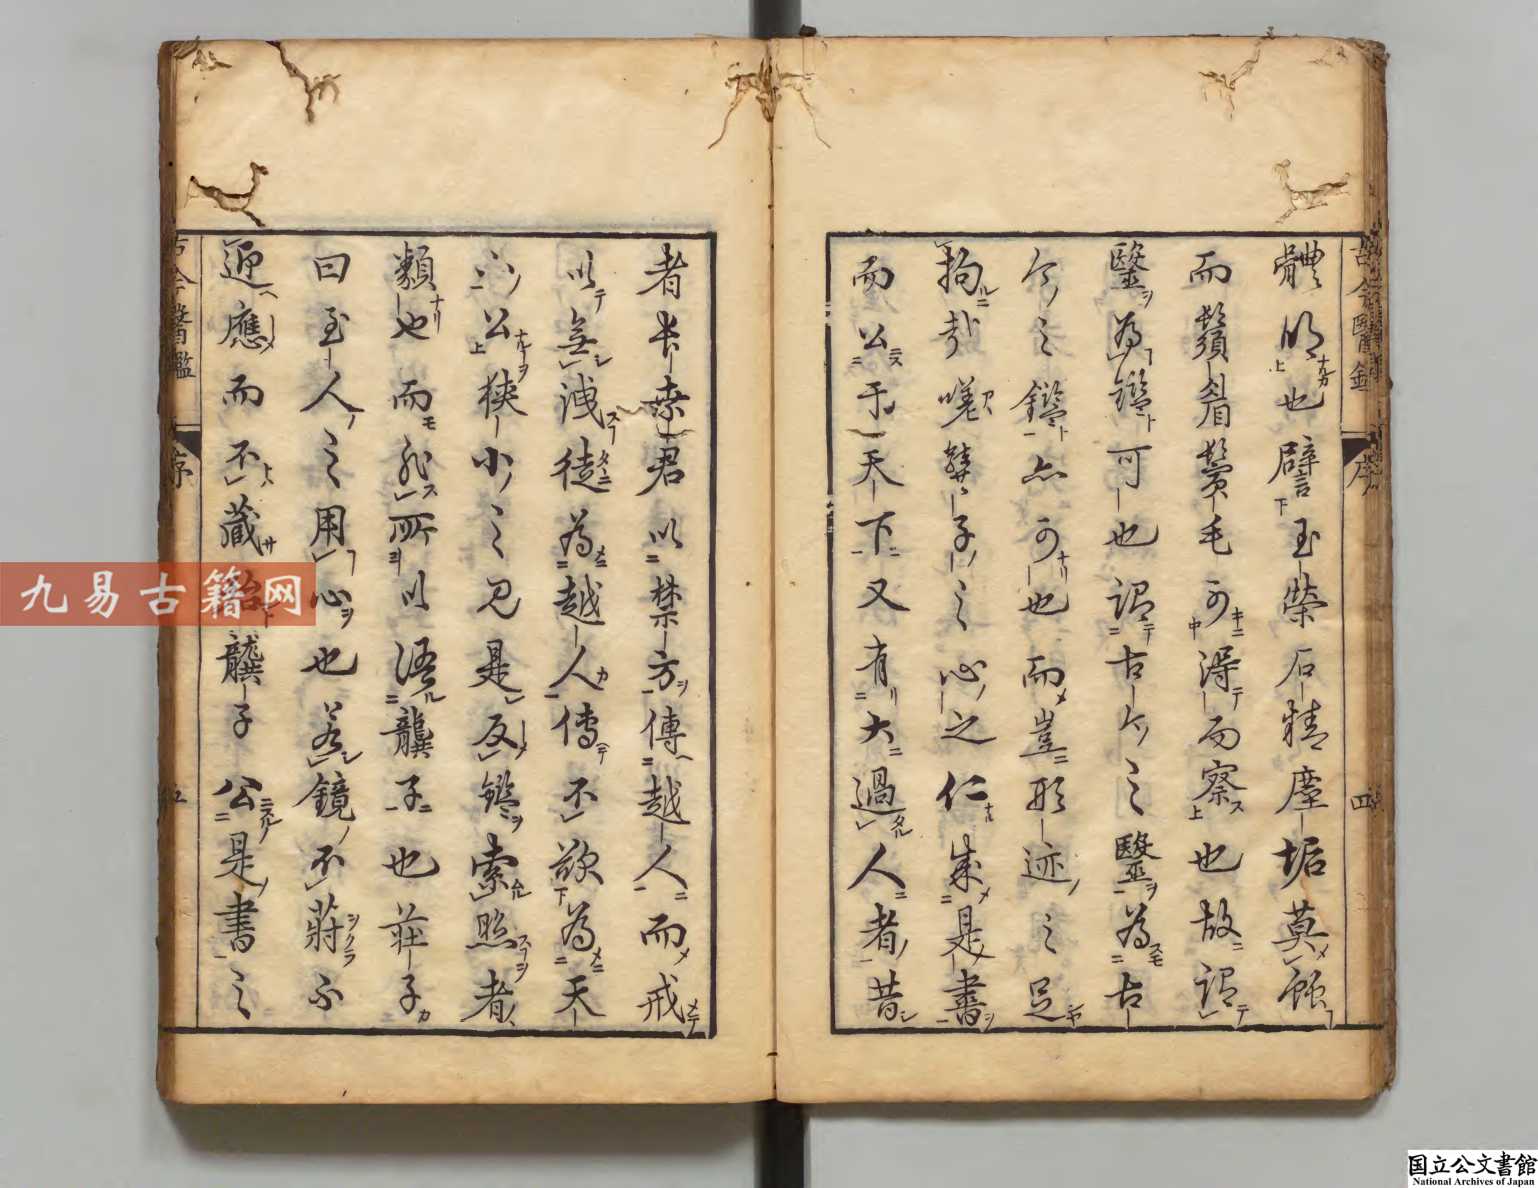 古今醫鑑 序 四
體明也譬至榮石精塵垢莫
而鬚眉鬢毛可得而察也故謂
醫為鑑可也謂古今之醫為古
今之鑑亦可也而豈形迹之足
拘哉嗟龔子之心之仁集是書
而公于天下又有大過人者昔
者長桑君以禁方傳越人而戒
以無洩徒為越人傳不欲為天
下公狹小之見是反鑑索照者
類也而非所以語龔子也莊子
曰至人之用心也若鏡不蔣不
迎應而不藏殆龔子公是書之
古今醫鑑 序 五
九易古籍网
国立公文書館
National Archives of Japan